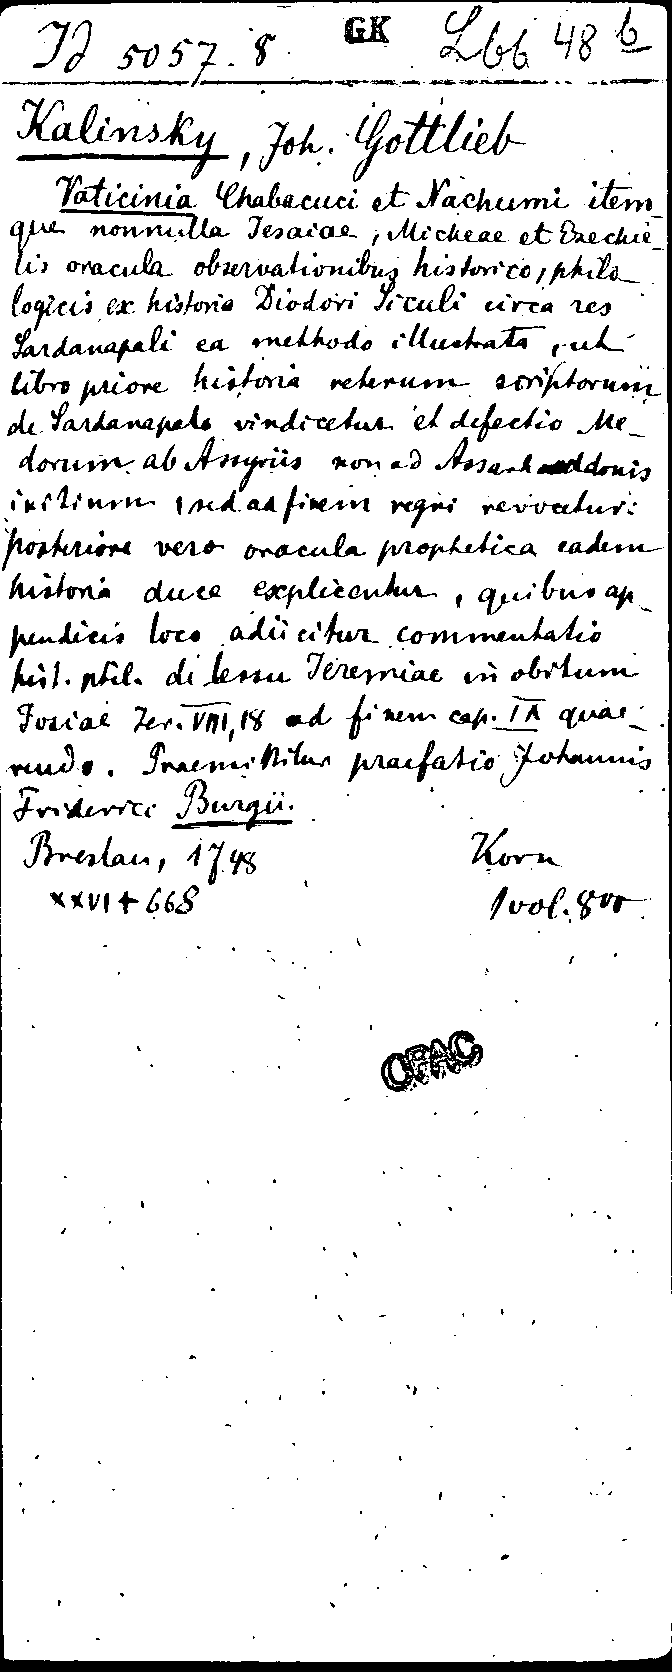 Id 5057.8 GK Lbb 48 b
Kalinsky, Joh. Gottlieb
Vaticinia Chabacuci et Nachumi item
que nonnulla Iesaiae, Micheae et Ezechie-
lis oracula observationibus historico, philo
logicis ex historia Diodori Siculi circa res
Sardanapali ea methodo illustrata, ut
libro priore historia veterum scriptorum
de Sardanapalo vindicetur et defectio Me-
dorum ab Assyriis non ad Assarhaddonis
initium, sed ad finem regni revocetur:
posteriore vero oracula prophetica eadem
historia duce explicentur, quibus ap-
pendicis loco adiicitur commentatio
hist. phil. di lessu Ieremiae in obitum
Iosiae Jer. VIII,18 ad finem cap. IX quae-
rendo. Praemittitur praefatio Johannis
Friderici Burgii.
Breslau, 1748 Korn
XXVI + 668 1 vol. 8vo
OPAC